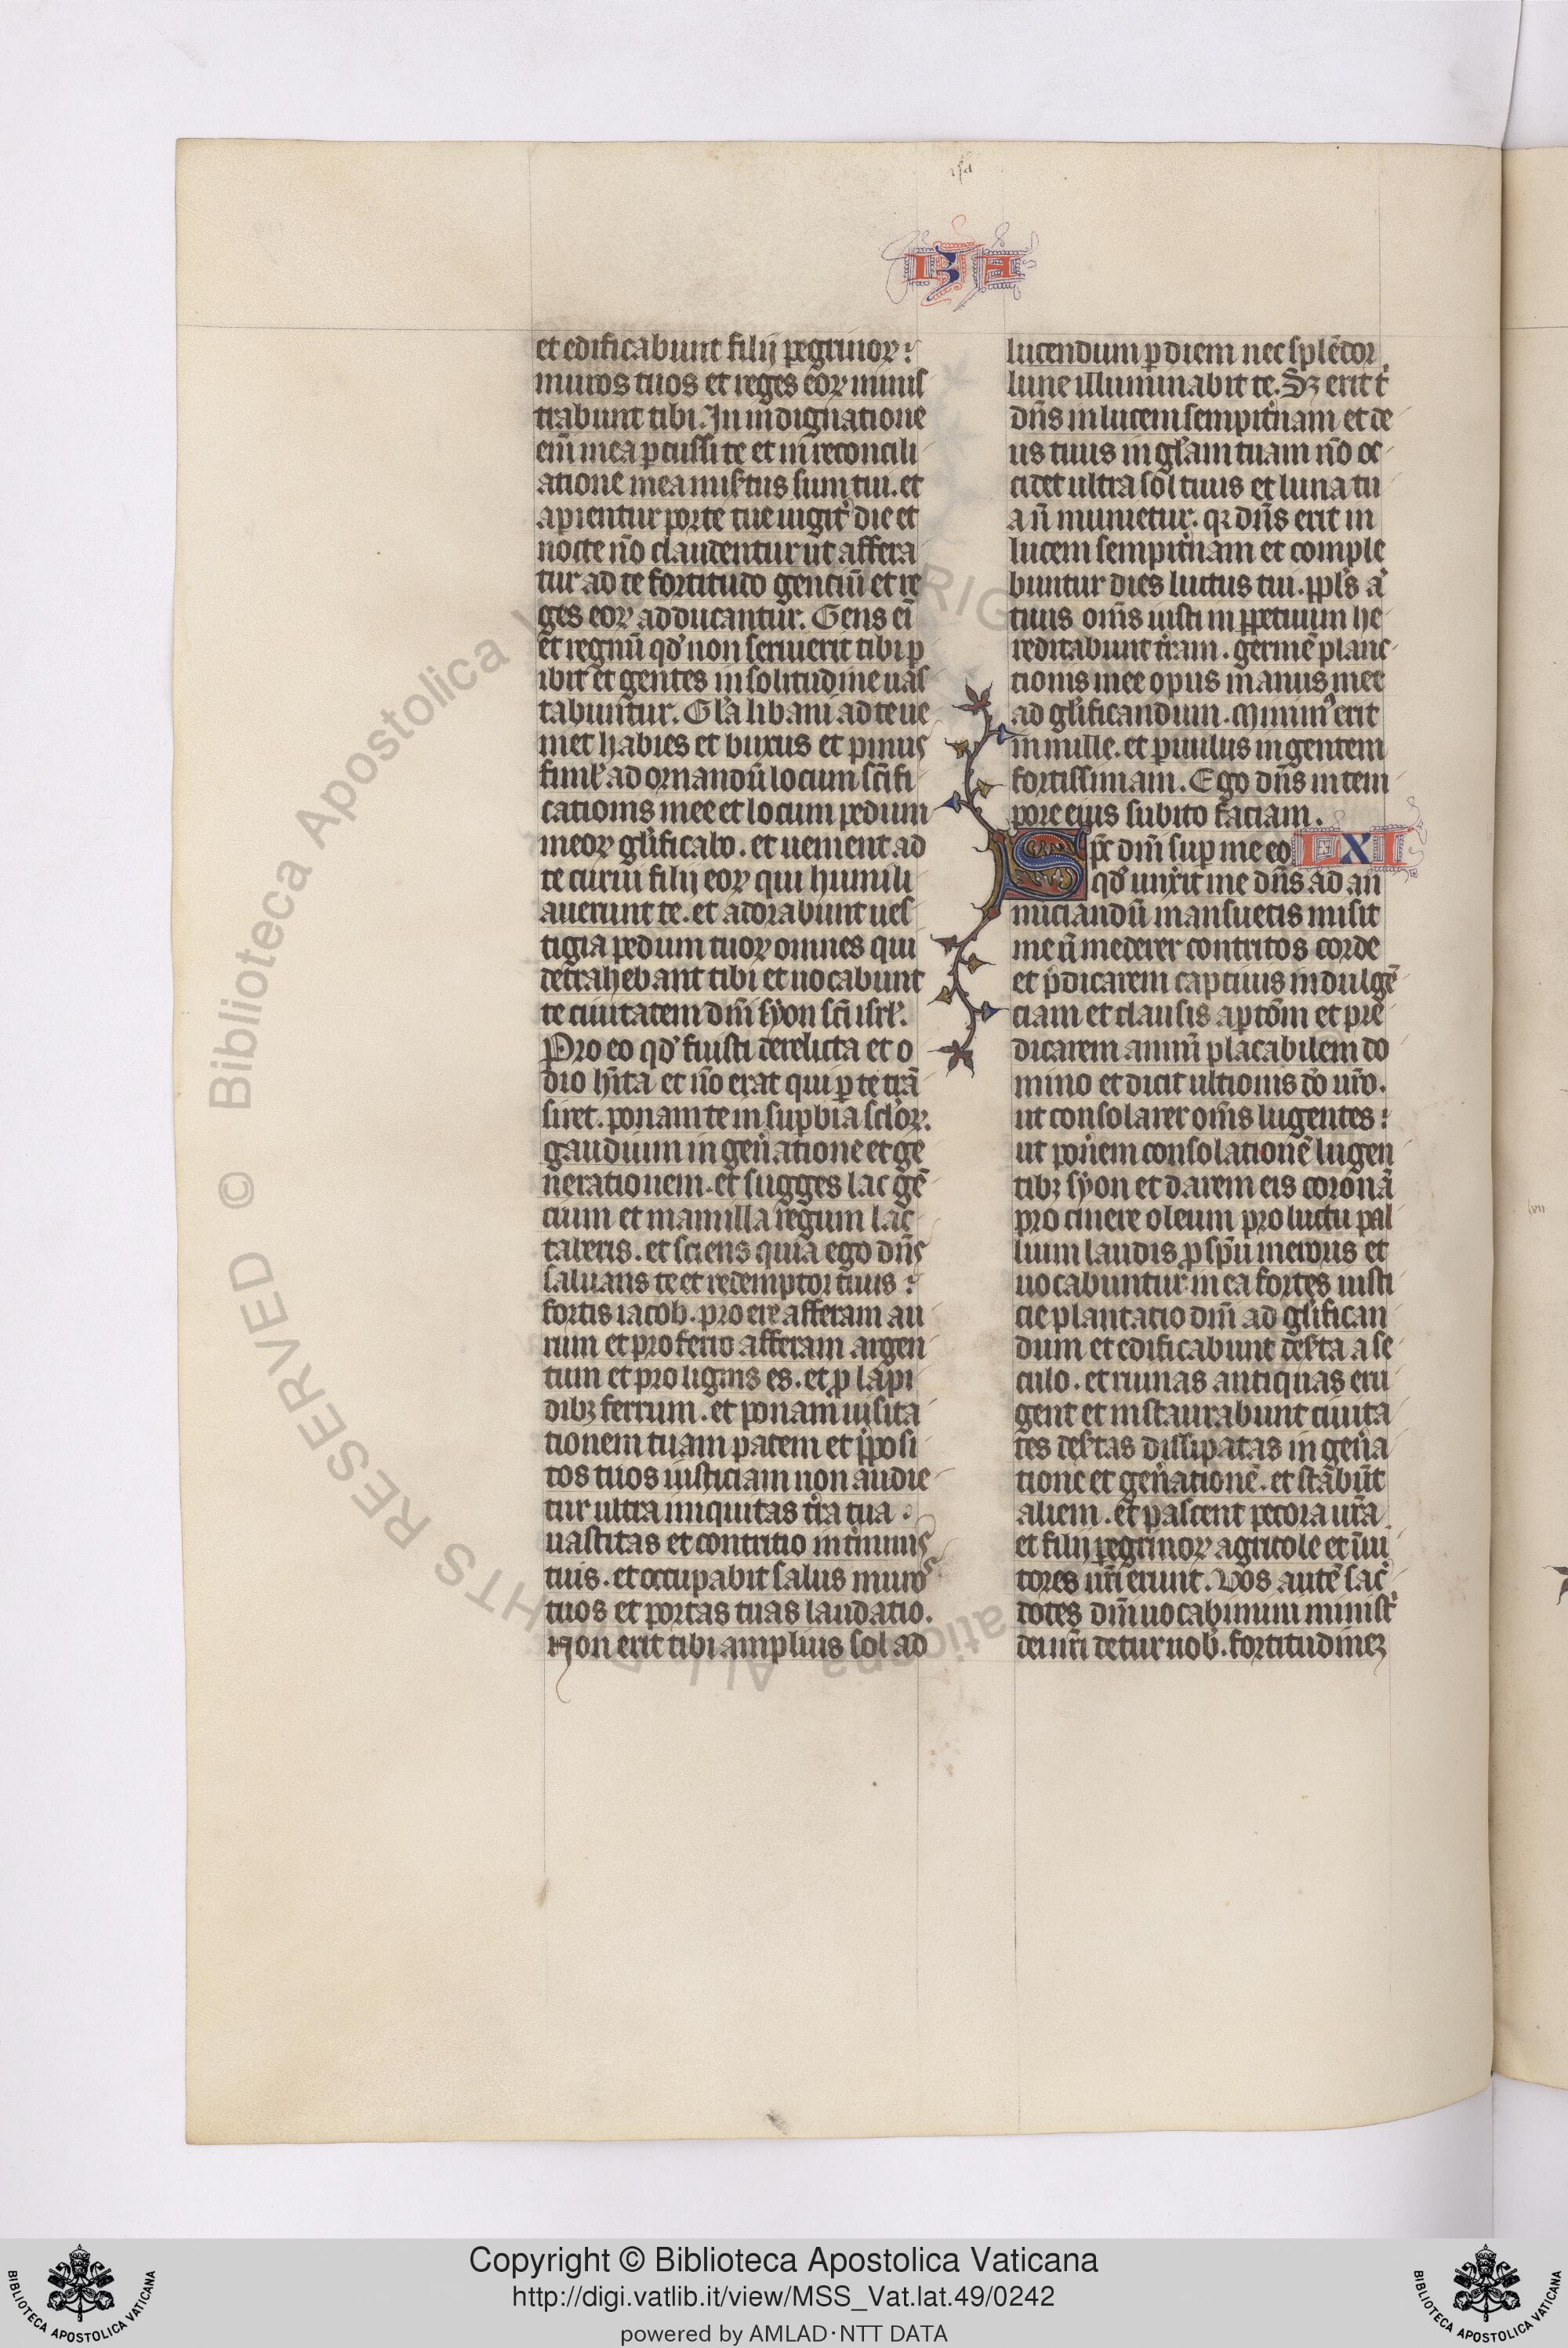 isa
ISA
et edificabunt filij peg̃rinoꝝ:
muros tuos et reges eoꝝ minis
trabunt tibi. In indignatione
eni᷒ mea ꝑcussi te et ĩ reconcili
atione mea mis̾tus sum tui. et
aperientur porte tue iugit̾ die et
nocte nõ claudentur ut affera
tur ad te fortitudo genciũ et re
ges eoꝝ adducantur. Gens ei̅
et regnũ qd̾ non seruierit tibi ꝑ
ibit et gentes in solitudine uas
tabuntur. Gl̾a libani ad te ue
niet habies et buxus et pinus
simĺ ad ornandũ locum sc̃ifi
cationis mee et locum pedum
meoꝝ gl̾ificabo. et uenient ad
te curui filij eoꝝ qui humili
auerunt te. et adorabunt ues
tigia pedum tuoꝝ omnes qui
detrahebant tibi et uocabunt
te ciuitatem dñi syon sc̃i isrl̾.
Pro eo qd̾ fuisti derelicta et o
dio hĩta et nõ erat qui ꝑ te trã
siret. ponam te in suꝑbia sc̃loꝝ.
gaudium in gen̾atione et ge
nerationem. et sugges lac gẽ
cium et mamilla regum lac
taberis. et sciens quia ego dñs
saluans te et redemptor tuus:
fortis iacob. pro ere afferam au
rum et pro ferro afferam argen
tum et pro lignis es. et ꝓ lapi
dibꝫ ferrum. et ponam uisita
tionem tuam pacem et p̃posi
tos tuos iusticiam non audie
tur ultra iniquitas t̾ra tua.
uastitas et contritio in t̾minis
tuis. et occupabit salus muros
tuos et portas tuas laudatio.
Non erit tibi amplius sol ad
lucendum ꝑ diem nec splẽdor
lune illuminabit te. Sꝫ erit t̾
dñs in lucem sempit̾nam et de
us tuus in gl̾am tuam nõ oc
cidet ultra sol tuus et luna tu
a ñ minuetur. qꝛ dñs erit in
lucem sempit̾nam et comple
buntur dies luctus tui. ppl̾s a̾
tuus om̃s iusti in ꝑpetuum he
reditabunt t̾ram. germẽ planc
tionis mee opus manus mee
ad gl̾ificandum. Minim᷒ erit
in mille. et ꝑuulus in gentem
fortissimam. Ego dñs in tem
pore eius subito faciam.
Spc̃ dñi suꝑ me eo LXI
qd̾ unxit me dñs ad an
nuciandũ mansuetis misit
me ũ mederer contritos corde
et p̃dicarem captiuis indulgẽ
ciam et clausis aꝑtõm et pre
dicarem annũ placabilem do
mino et dicit ultionis dõ nr̃o.
ut consolarer om̃s lugentes:
ut pon̾em consolationẽ lugen
tibꝫ syon et darem eis coronã
pro cinere oleum pro luctu pal
lium laudis ꝓ sp̃u meroris et
uocabuntur in ea fortes iusti
cie plantacio dñi ad gl̾ifican
dum et edificabunt des̾ta a se
culo. et ruinas antiquas eri
gent et instaurabunt ciuita
tes des̾tas dissipatas in gen̾a
tione et gen̾ationẽ. et stabũt
alieni. et pascent pecora ur̃a
et filij ꝑegrinoꝝ agricole et ũni
tores ur̃i erunt. Vos autẽ sac̾
dotes dñi uocabimini minist̾
dei nr̃i detur uob̾. fortitudineꝫ
lxii
Copyright © Biblioteca Apostolica Vaticana
http://digi.vatlib.it/view/MSS_Vat.lat.49/0242
powered by AMLAD·NTT DATA
BIBLIOTECA APOSTOLICA VATICANA
BIBLIOTECA APOSTOLICA VATICANA